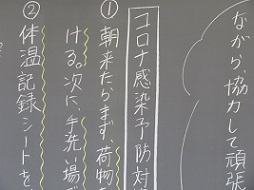 ながら、協力して頑張
コロナ感染予防対
①朝来たらまず、荷物
ける。次に、手洗い場
②体温記録シートを